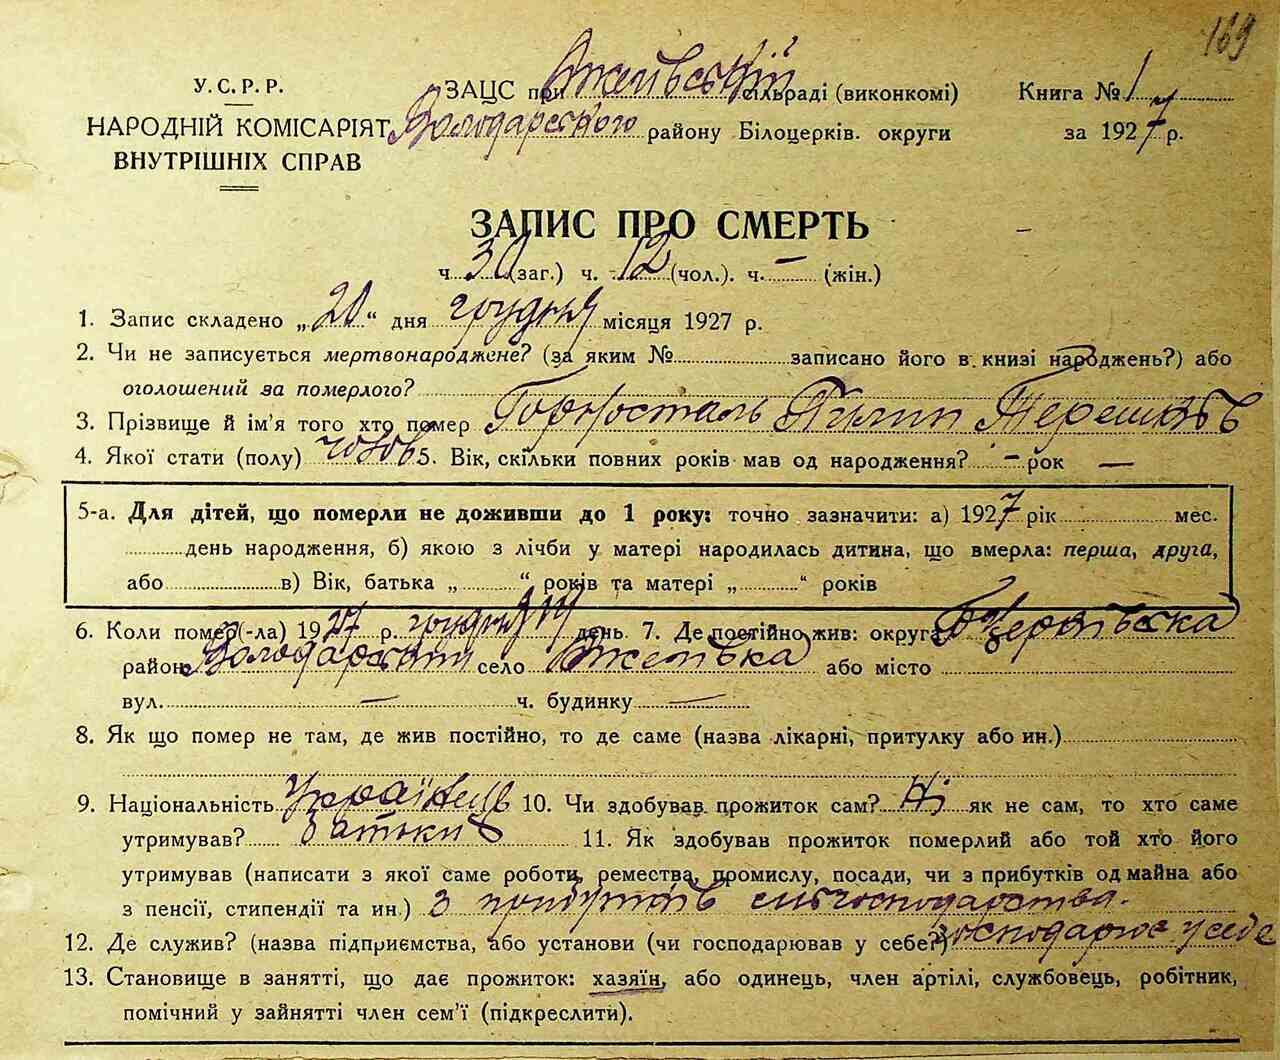 169
У.С.Р.Р.
НАРОДНІЙ КОМІСАРІЯТ
ВНУТРІШНІХ СПРАВ
ЗАЦС при сільраді (виконкомі)
Володарського району Білоцерків. округи
Книга № 1
за 1927 р.
ЗАПИС ПРО СМЕРТЬ
ч. 30 (заг.) ч. 12 (чол.). ч. — (жін.)
1. Запис складено „20“ дня грудня місяця 1927 р.
2. Чи не записується мертвонароджене? (за яким № записано його в книзі народжень?) або
оголошений за померлого?
3. Прізвище й ім'я того хто помер Горносталь Пилип
4. Якої стати (полу) чолов 5. Вік, скільки повних років мав од народження? — рок —
5-а. Для дітей, що померли не доживши до 1 року: точно зазначити: а) 1927 рік мес.
день народження, б) якою з лічби у матері народилась дитина, що вмерла: перша, друга,
або в) Вік, батька „ “ років та матері „ “ років
6. Коли помер(-ла) 1927 р. грудня 19 день. 7. Де постійно жив: округа
район Володарський село або місто
вул. — ч. будинку —
8. Як що помер не там, де жив постійно, то де саме (назва лікарні, притулку або ин.)
9. Національність Українець 10. Чи здобував прожиток сам? Ні як не сам, то хто саме
утримував? 11. Як здобував прожиток померлий або той хто його
утримував (написати з якої саме роботи, ремества, промислу, посади, чи з прибутків од майна або
з пенсії, стипендії та ин.) З прибутків сільгосподарства.
12. Де служив? (назва підприємства, або установи (чи господарював у себе?) господарює у себе
13. Становище в занятті, що дає прожиток: хазяїн, або одинець, член артілі, службовець, робітник,
помічний у зайнятті член сем'ї (підкреслити).